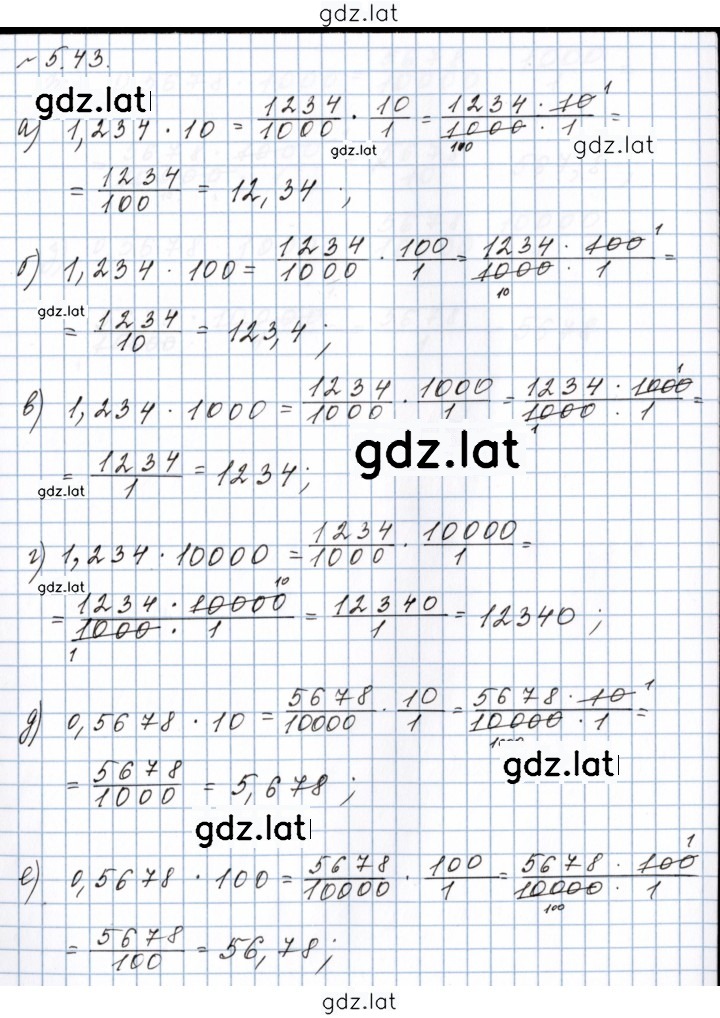 gdz.lat
№ 5.43.
gdz.lat
а) 1,234 · 10 = 1234/1000 · 10/1 = 1234 · 10 1/1000 · 1 =
gdz.lat
gdz.lat
100
= 1234/100 = 12,34 ;
б) 1,234 · 100 = 1234/1000 · 100/1 = 1234 · 100 1/1000 · 1 =
10
gdz.lat
= 1234/10 = 123,4 ;
в) 1,234 · 1000 = 1234/1000 · 1000/1 = 1234 · 1000 1/1000 · 1 =
1
gdz.lat
= 1234/1 = 1234 ;
gdz.lat
г) 1,234 · 10000 = 1234/1000 · 10000/1 =
gdz.lat
10
= 1234 · 10000/1000 · 1 = 12340/1 = 12340 ;
1
д) 0,5678 · 10 = 5678/10000 · 10/1 = 5678 · 10 1/10000 · 1 =
1000
gdz.lat
= 5678/1000 = 5,678 ;
gdz.lat
е) 0,5678 · 100 = 5678/10000 · 100/1 = 5678 · 100 1/10000 · 1
100
= 5678/100 = 56,78 ;
gdz.lat